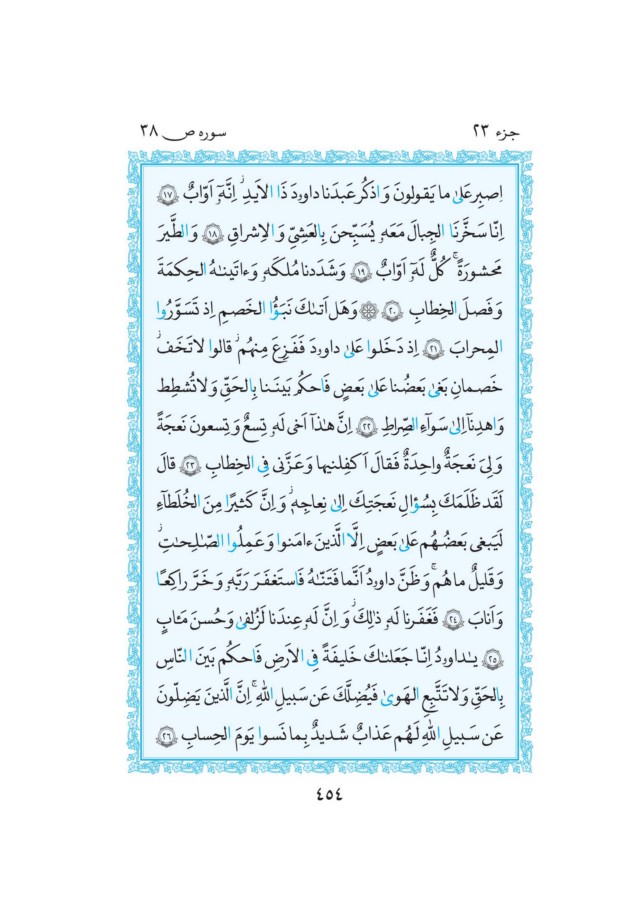 جزء ۲۳
سوره ص ۳۸
اِصبِر عَلىٰ ما يَقولونَ وَ اذكُر عَبدَنا داوۥدَ ذَا الاَيدِ ۖ اِنَّهٗٓ اَوّابٌ ﴿۱۷﴾
اِنّا سَخَّرنَا الجِبالَ مَعَهٗ يُسَبِّحنَ بِالعَشِىِّ وَ الاِشراقِ ﴿۱۸﴾ وَ الطَّيرَ
مَحشورَةً ۖ كُلٌّ لَهٗٓ اَوّابٌ ﴿۱۹﴾ وَ شَدَدنا مُلكَهٗ وَ ءاتَينٰهُ الحِكمَةَ
وَ فَصلَ الخِطابِ ﴿۲۰﴾ ۞ وَ هَل اَتىٰكَ نَبَؤُا الخَصمِ اِذ تَسَوَّرُوا
المِحرابَ ﴿۲۱﴾ اِذ دَخَلوا عَلىٰ داوۥدَ فَفَزِعَ مِنهُم ۖ قالوا لا تَخَف ۖ
خَصمانِ بَغىٰ بَعضُنا عَلىٰ بَعضٍ فَاحكُم بَينَنا بِالحَقِّ وَ لا تُشطِط
وَ اهدِنآ اِلىٰ سَوآءِ الصِّراطِ ﴿۲۲﴾ اِنَّ هٰذآ اَخى لَهٗ تِسعٌ وَ تِسعونَ نَعجَةً
وَ لِىَ نَعجَةٌ واحِدَةٌ فَقالَ اَكفِلنيها وَ عَزَّنى فِى الخِطابِ ﴿۲۳﴾ قالَ
لَقَد ظَلَمَكَ بِسُؤالِ نَعجَتِكَ اِلىٰ نِعاجِهٖ ۖ وَ اِنَّ كَثيرًا مِنَ الخُلَطآءِ
لَيَبغى بَعضُهُم عَلىٰ بَعضٍ اِلَّا الَّذينَ ءامَنوا وَ عَمِلُوا الصّٰلِحٰتِ
وَ قَليلٌ ما هُم ۗ وَ ظَنَّ داوۥدُ اَنَّما فَتَنّٰهُ فَاستَغفَرَ رَبَّهٗ وَ خَرَّ راكِعًا
وَ اَنابَ ﴿۲۴﴾ فَغَفَرنا لَهٗ ذٰلِكَ ۖ وَ اِنَّ لَهٗ عِندَنا لَزُلفىٰ وَ حُسنَ مَـٔابٍ
﴿۲۵﴾ يٰداوۥدُ اِنّا جَعَلنٰكَ خَليفَةً فِى الاَرضِ فَاحكُم بَينَ النّاسِ
بِالحَقِّ وَ لا تَتَّبِعِ الهَوىٰ فَيُضِلَّكَ عَن سَبيلِ اللّٰهِ ۚ اِنَّ الَّذينَ يَضِلّونَ
عَن سَبيلِ اللّٰهِ لَهُم عَذابٌ شَديدٌ بِما نَسوا يَومَ الحِسابِ ﴿۲۶﴾
٤٥٤